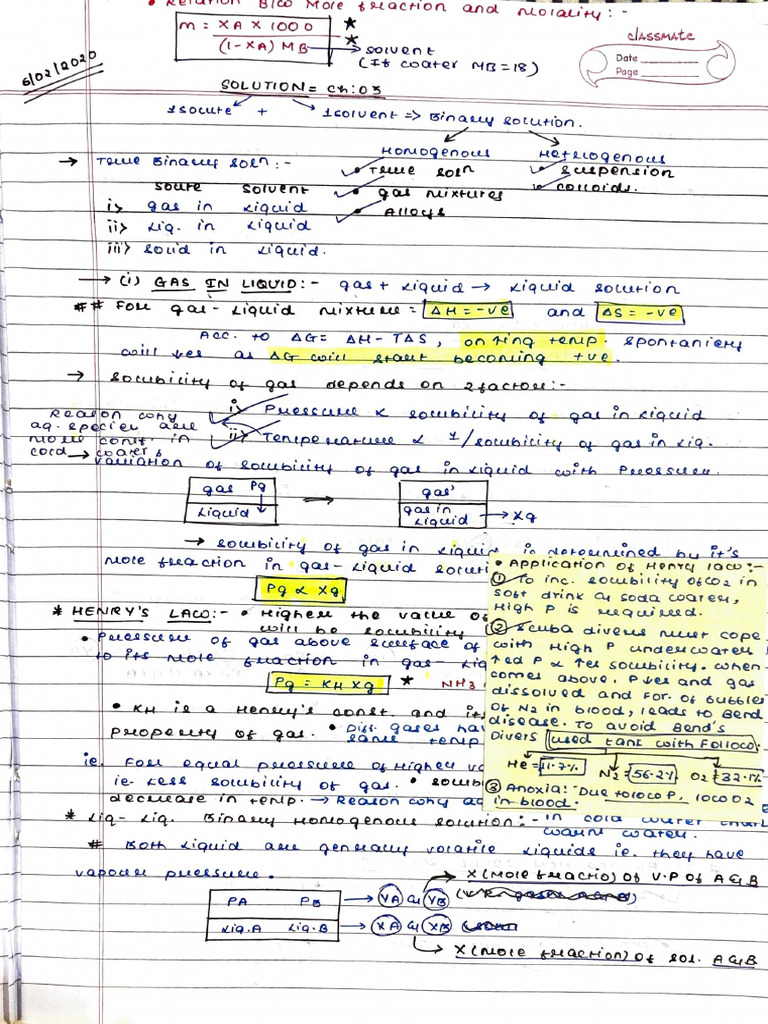 • Relation B/w Mole fraction and Molality:-
m = XA X 1000
(1-XA) MB → solvent
(If water MB=18)
classmate
Date
Page
6/02/2020
SOLUTION = Ch:03
1 solute + 1 solvent => Binary solution.
Homogenous Heterogenous
→ True Binary soln:- • True soln • suspension
solute solvent • gas mixtures • colloids.
i> gas in liquid • Alloys
ii> Liq. in liquid
iii> solid in liquid.
→ (i) GAS IN LIQUID:- gas + liquid → liquid solution
## For gas-liquid mixture = ΔH = -ve and ΔS = -ve
Acc. to ΔG = ΔH - TΔS, on ↑ing temp. spontaniety
will ↓es as ΔG will start becoming +ve.
→ solubility of gas depends on 2 factor:-
i> Pressure ∝ solubility of gas in liquid
ii> Temperature ∝ 1/solubility of gas in liq.
Reason why
aq. species are
more conf. in
cold → water
Variation of solubility of gas in liquid with Pressure.
gas Pg ⇒ gas'
Liquid gas in liquid → Xg
→ solubility of gas in liquid is determined by it's
mole fraction in gas-liquid soluti
Pg ∝ Xg
* HENRY'S LAW:- • Higher the value of
will be solubility
• Pressure of gas above surface of
to its mole fraction in gas-liq
Pg = KH Xg * NH3,
• KH is a Henry's const. and its
property of gas. • Diff. gases hav
same temp
ie. For equal pressure of Higher v
ie. less solubility of gas. • solub
decrease in temp. → Reason why aq
in cold water than
warm water.
• Application of Henry law:-
① To inc. solubility of CO2 in
soft drink & soda water,
High P is required.
② Scuba divers must cope
with High P underwater
↑ed P ∝ ↑es solubility. when
comes above, P↓es and gas
dissolved and for. of bubbles
of N2 in blood, leads to Bend
disease. To avoid Bend's
Divers used tank with Follow.
He = 11.7% N2 = 56.2% O2 = 32.1%
③ Anoxia: Due to low P, low O2
in blood.
* Liq-Liq. Binary Homogenous solution:-
# Both liquid are generally volatile liquids ie. they have
vapour pressure.
→ X (Mole fractio) of V.P of A & B
PA PB → YA & YB
Liq.A Liq.B → XA & XB
→ X (Mole fraction) of sol. A & B